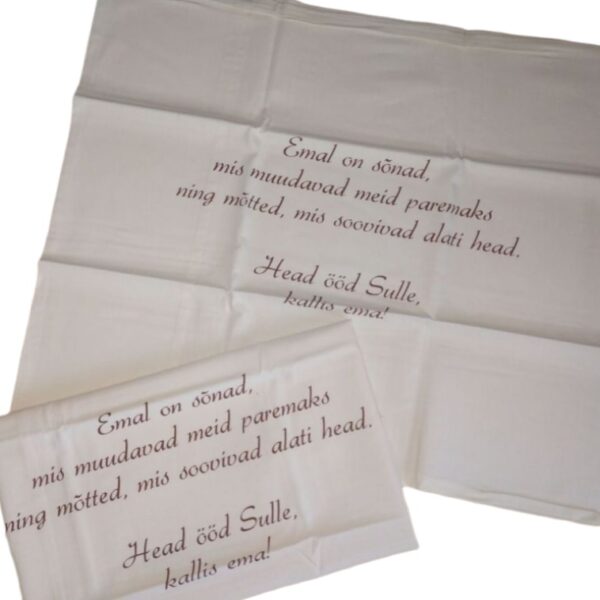 Emal on sõnad,
mis muudavad meid paremaks
ning mõtted, mis soovivad alati head.
Head ööd Sulle,
kallis ema!
Emal on sõnad,
mis muudavad meid paremaks
ning mõtted, mis soovivad alati head.
Head ööd Sulle,
kallis ema!